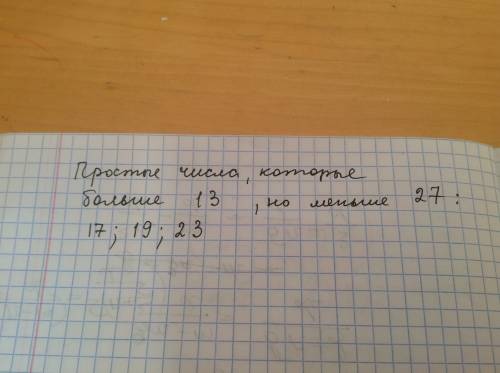 Простые числа, которые
больше 13 , но меньше 27:
17; 19; 23